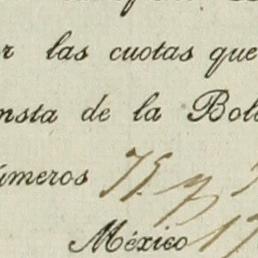 r las cuotas que
nsta de la Bol
úmeros 75. y
México 17